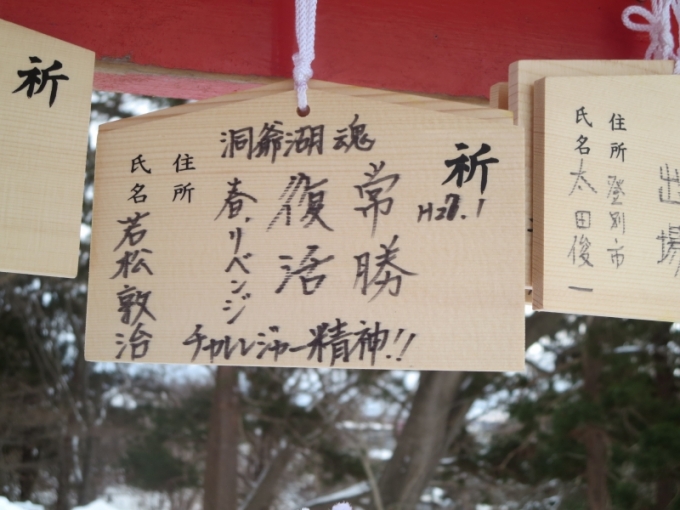 祈
洞爺湖魂
祈
H27.1
常勝
復活
春、リベンジ
チャレンジャー精神!!
住所
氏名 若松敦治
出場
住所 登別市
氏名 太田俊一